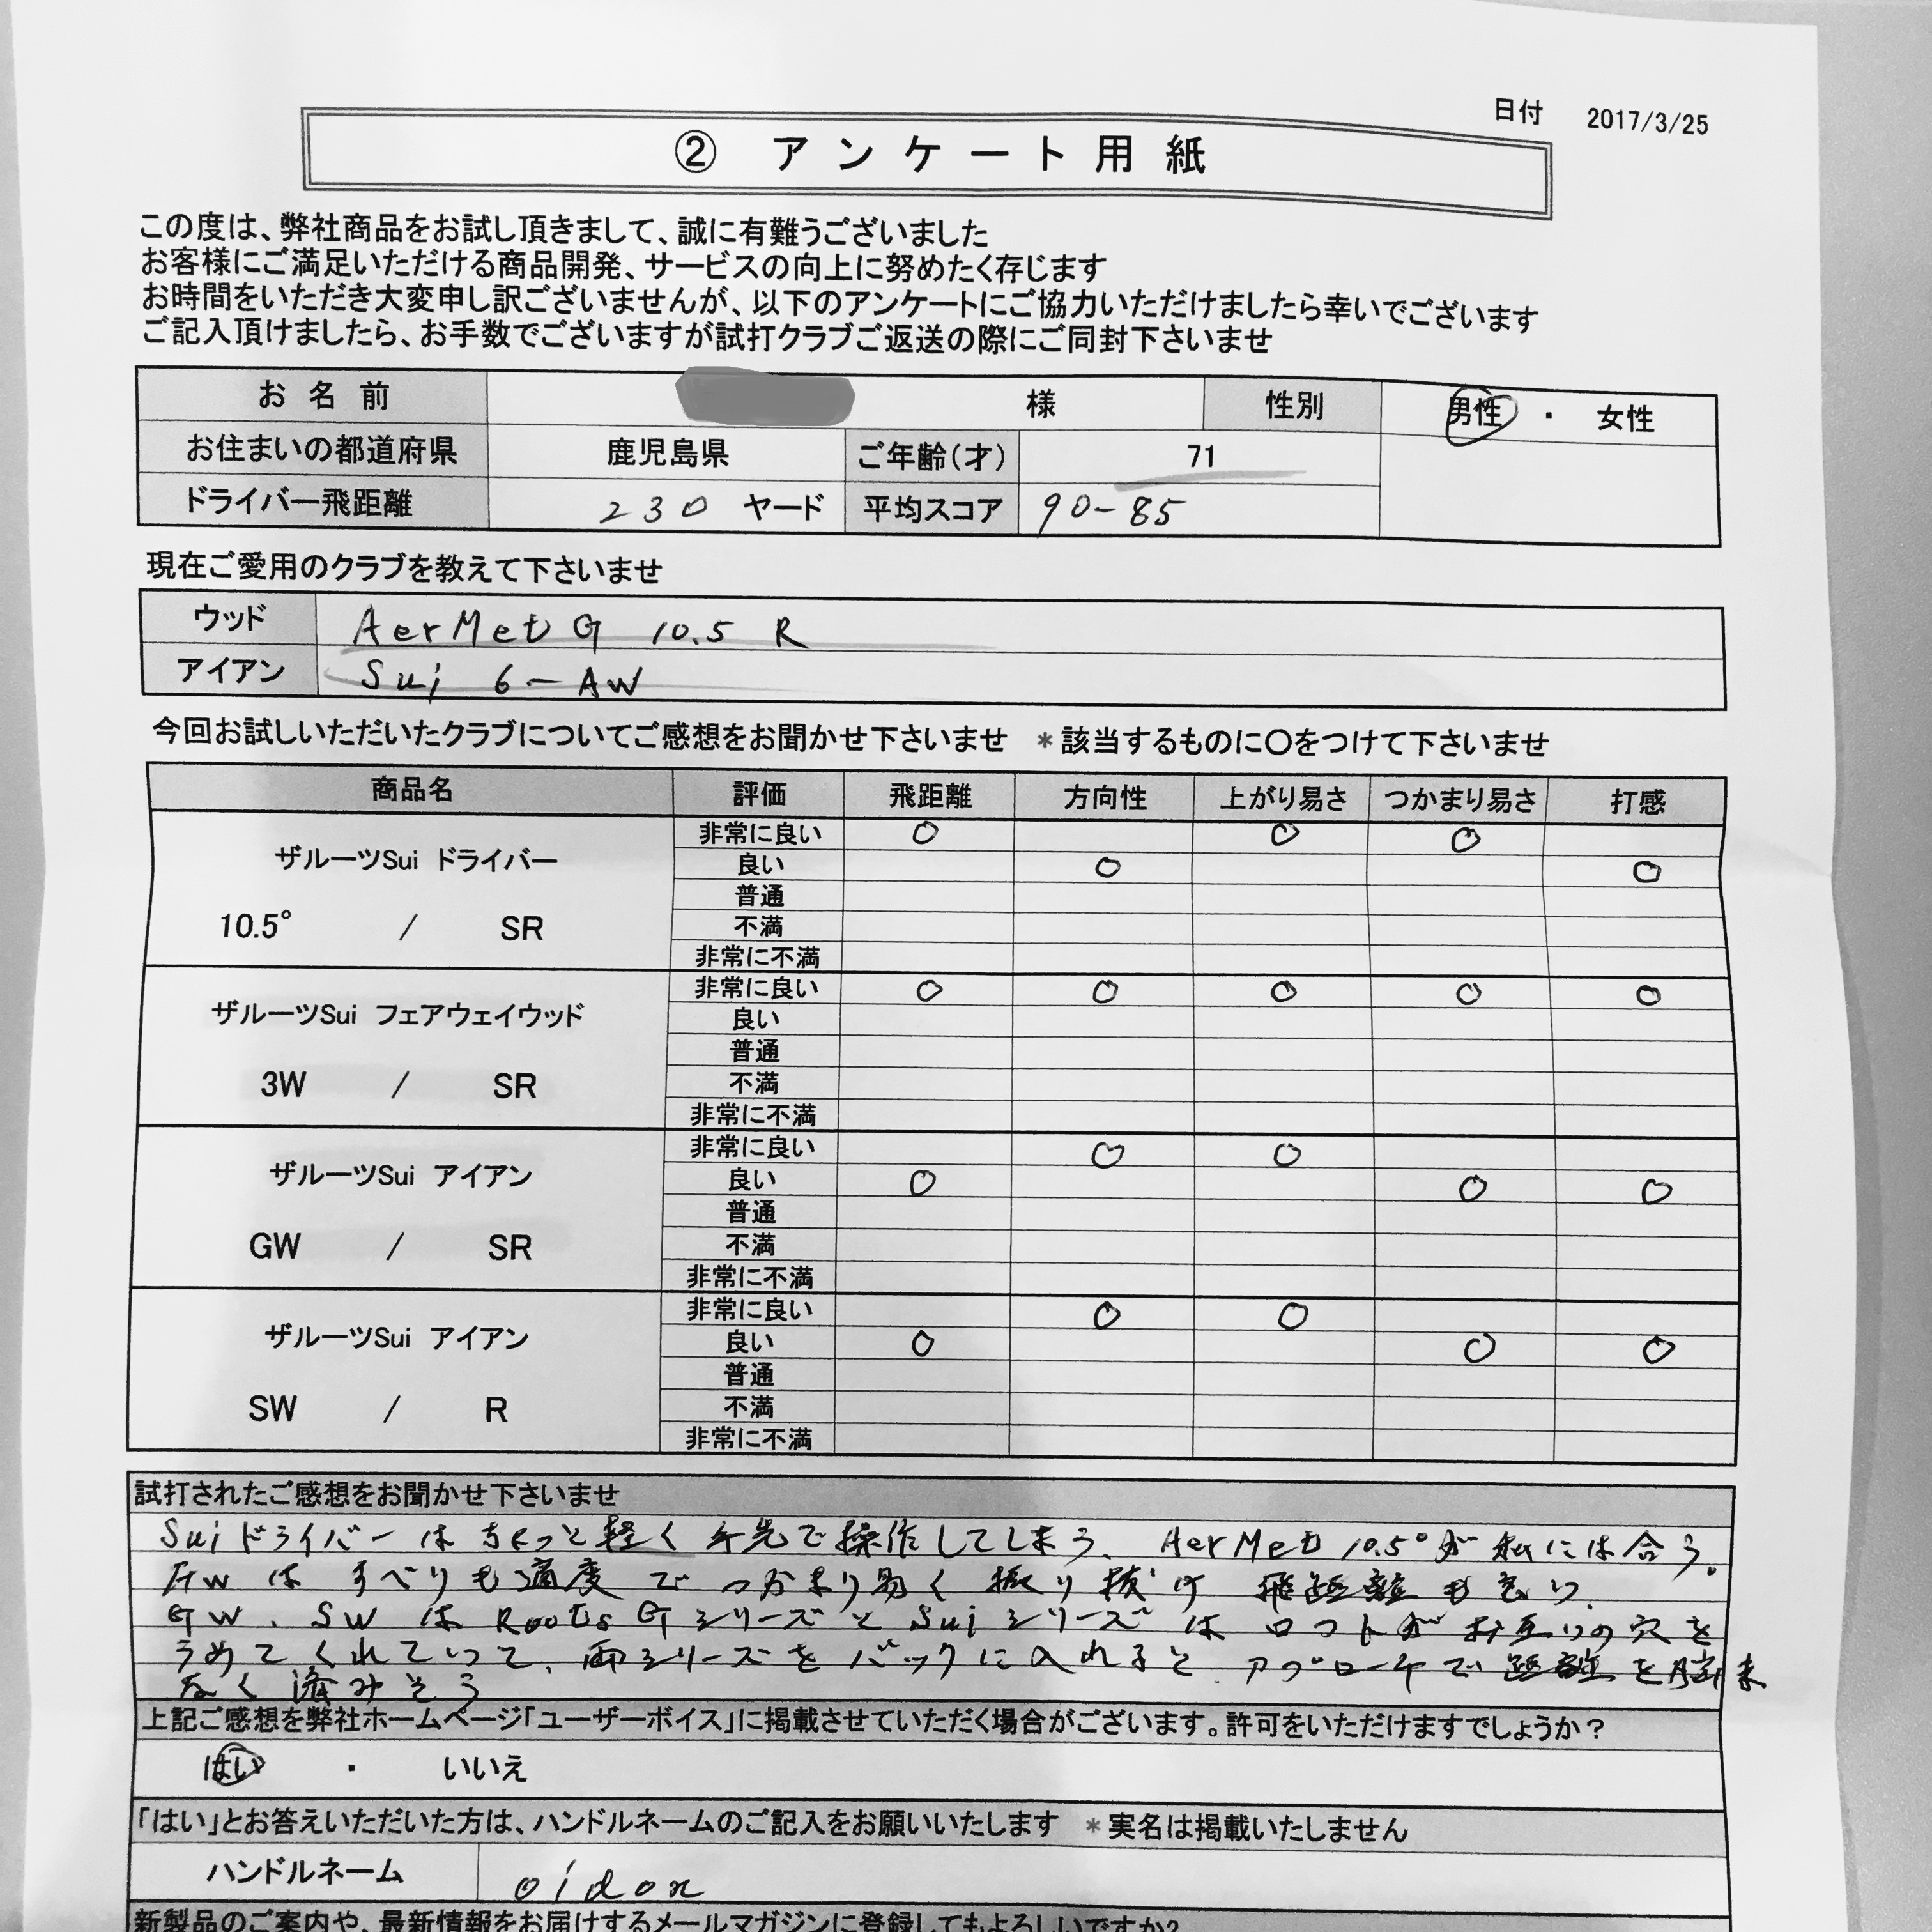 日付 2017/3/25
② アンケート用紙
この度は、弊社商品をお試し頂きまして、誠に有難うございました
お客様にご満足いただける商品開発、サービスの向上に努めたく存じます
お時間をいただき大変申し訳ございませんが、以下のアンケートにご協力いただけましたら幸いでございます
ご記入頂けましたら、お手数でございますが試打クラブご返送の際にご同封下さいませ
お名前 様 性別 男性 ・ 女性
お住まいの都道府県 鹿児島県 ご年齢(才) 71
ドライバー飛距離 230 ヤード 平均スコア 90-85
現在ご愛用のクラブを教えて下さいませ
ウッド AerMet G 10.5 R
アイアン Sui 6-AW
今回お試しいただいたクラブについてご感想をお聞かせ下さいませ *該当するものに〇をつけて下さいませ
商品名 評価 飛距離 方向性 上がり易さ つかまり易さ 打感
ザルーツSui ドライバー
10.5° / SR
非常に良い ○ ○ ○
良い ○ ○
普通
不満
非常に不満
ザルーツSui フェアウェイウッド
3W / SR
非常に良い ○ ○ ○ ○ ○
良い
普通
不満
非常に不満
ザルーツSui アイアン
GW / SR
非常に良い ○ ○
良い ○ ○ ○
普通
不満
非常に不満
ザルーツSui アイアン
SW / R
非常に良い ○ ○
良い ○ ○ ○
普通
不満
非常に不満
試打されたご感想をお聞かせ下さいませ
Suiドライバーはちょっと軽く手先で操作してしまう、AerMet 10.5°が私には合う。
FWはすべりも適度でつかまり易く振り抜け飛距離も良い、
GW、SWはRoots GシリーズとSuiシリーズはロフトがお互いの穴を
うめてくれていて、両シリーズをバックに入れると、アプローチで距離を
なく済みそう
上記ご感想を弊社ホームページ「ユーザーボイス」に掲載させていただく場合がございます。許可をいただけますでしょうか?
はい ・ いいえ
「はい」とお答えいただいた方は、ハンドルネームのご記入をお願いいたします *実名は掲載いたしません
ハンドルネーム oidon
新製品のご案内や、最新情報をお届けするメールマガジンに登録してもよろしいですか?